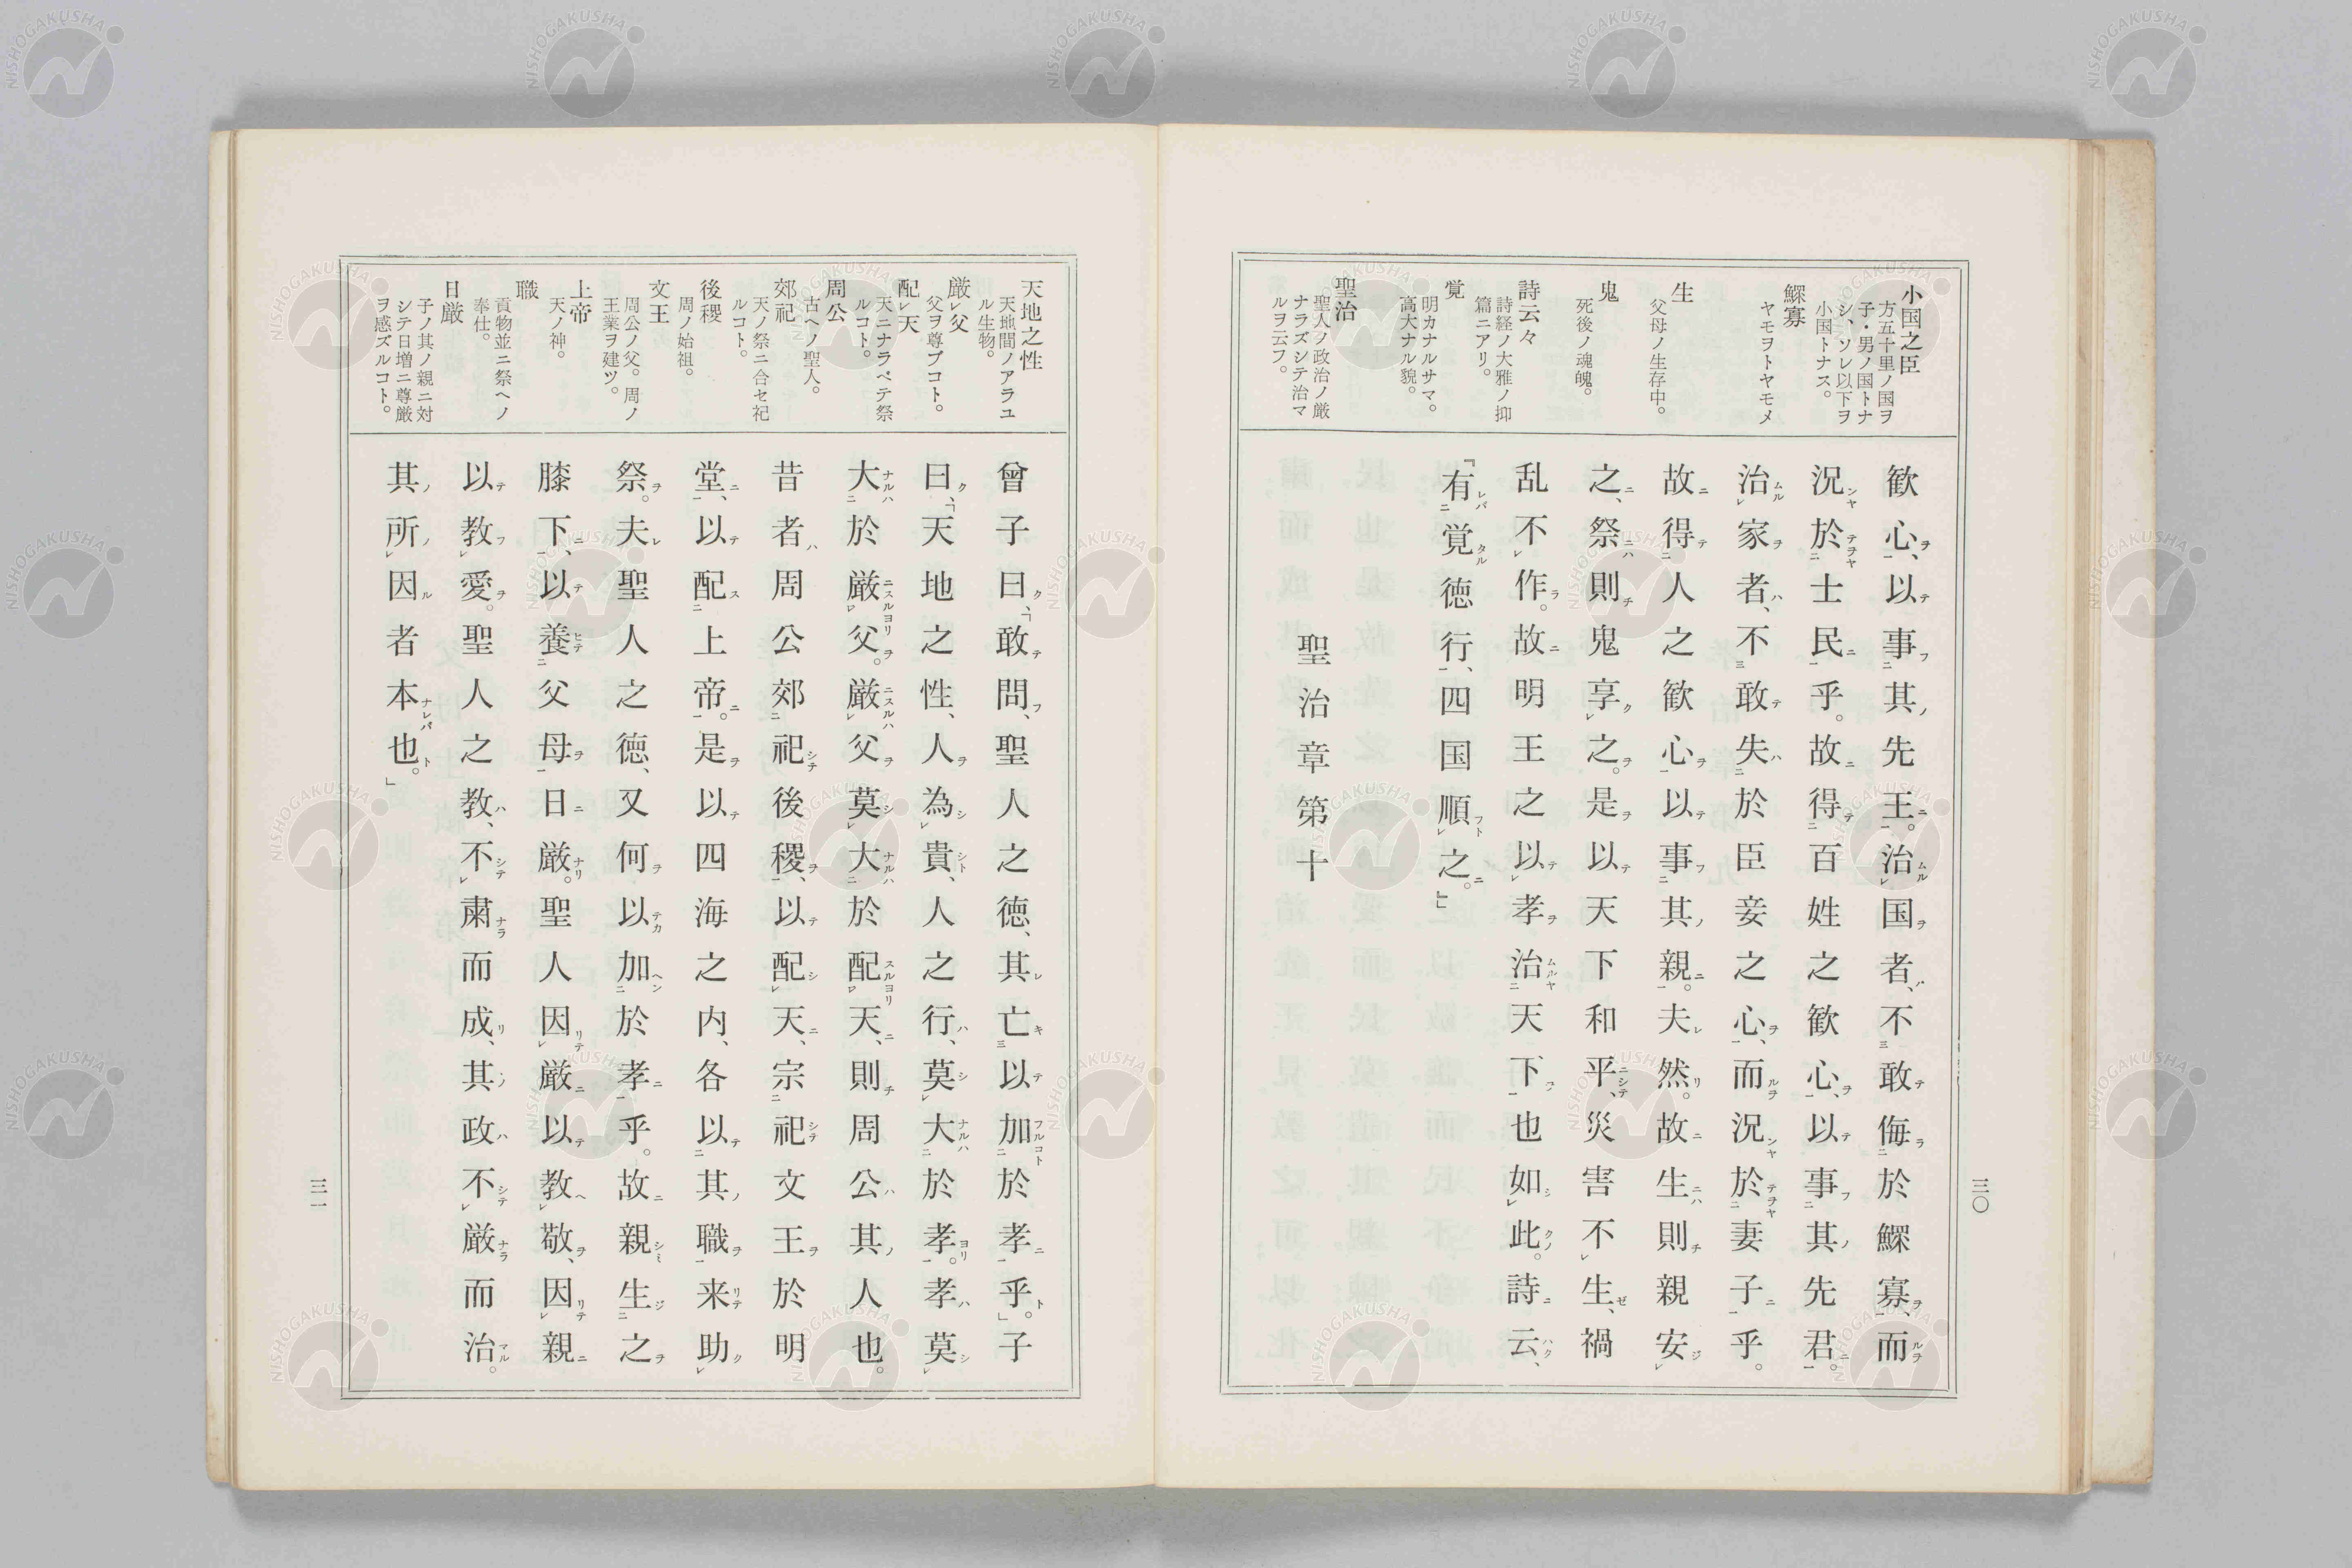 小国之臣
方五十里ノ国ヲ
子・男ノ国トナ
シ、ソレ以下ヲ
小国トナス。
鰥寡
ヤモヲトヤモメ
生
父母ノ生存中。
鬼
死後ノ魂魄。
詩云々
詩経ノ大雅ノ抑
篇ニアリ。
覚
明カナルサマ。
高大ナル貌。
聖治
聖人ノ政治ノ厳
ナラズシテ治マ
ルヲ云フ。
歓心、以事其先王。治国者、不敢侮於鰥寡、而
況於士民乎。故得百姓之歓心、以事其先君。
治家者、不敢失於臣妾之心、而況於妻子乎。
故得人之歓心以事其親。夫然。故生則親安
之、祭則鬼享之。是以天下和平、災害不生、禍
乱不作。故明王之以孝治天下也如此。詩云、
『有覚徳行、四国順之。』」
聖治章第十
三〇
天地之性
天地間ノアラユ
ル生物。
厳レ父
父ヲ尊ブコト。
配レ天
天ニナラベテ祭
ルコト。
周公
古ヘノ聖人。
郊祀
天ノ祭ニ合セ祀
ルコト。
後稷
周ノ始祖。
文王
周公ノ父。周ノ
王業ヲ建ツ。
上帝
天ノ神。
職
貢物並ニ祭ヘノ
奉仕。
日厳
子ノ其ノ親ニ対
シテ日増ニ尊厳
ヲ感ズルコト。
曾子曰、「敢問、聖人之徳、其亡以加於孝乎。」子
曰、「天地之性、人為貴、人之行、莫大於孝。孝莫
大於厳父。厳父莫大於配天、則周公其人也。
昔者周公郊祀後稷、以配天、宗祀文王於明
堂、以配上帝。是以四海之内、各以其職来助
祭。夫聖人之徳、又何以加於孝乎。故親生之
膝下、以養父母日厳。聖人因厳以教敬、因親
以教愛。聖人之教、不粛而成、其政不厳而治。
其所因者本也。」
三一